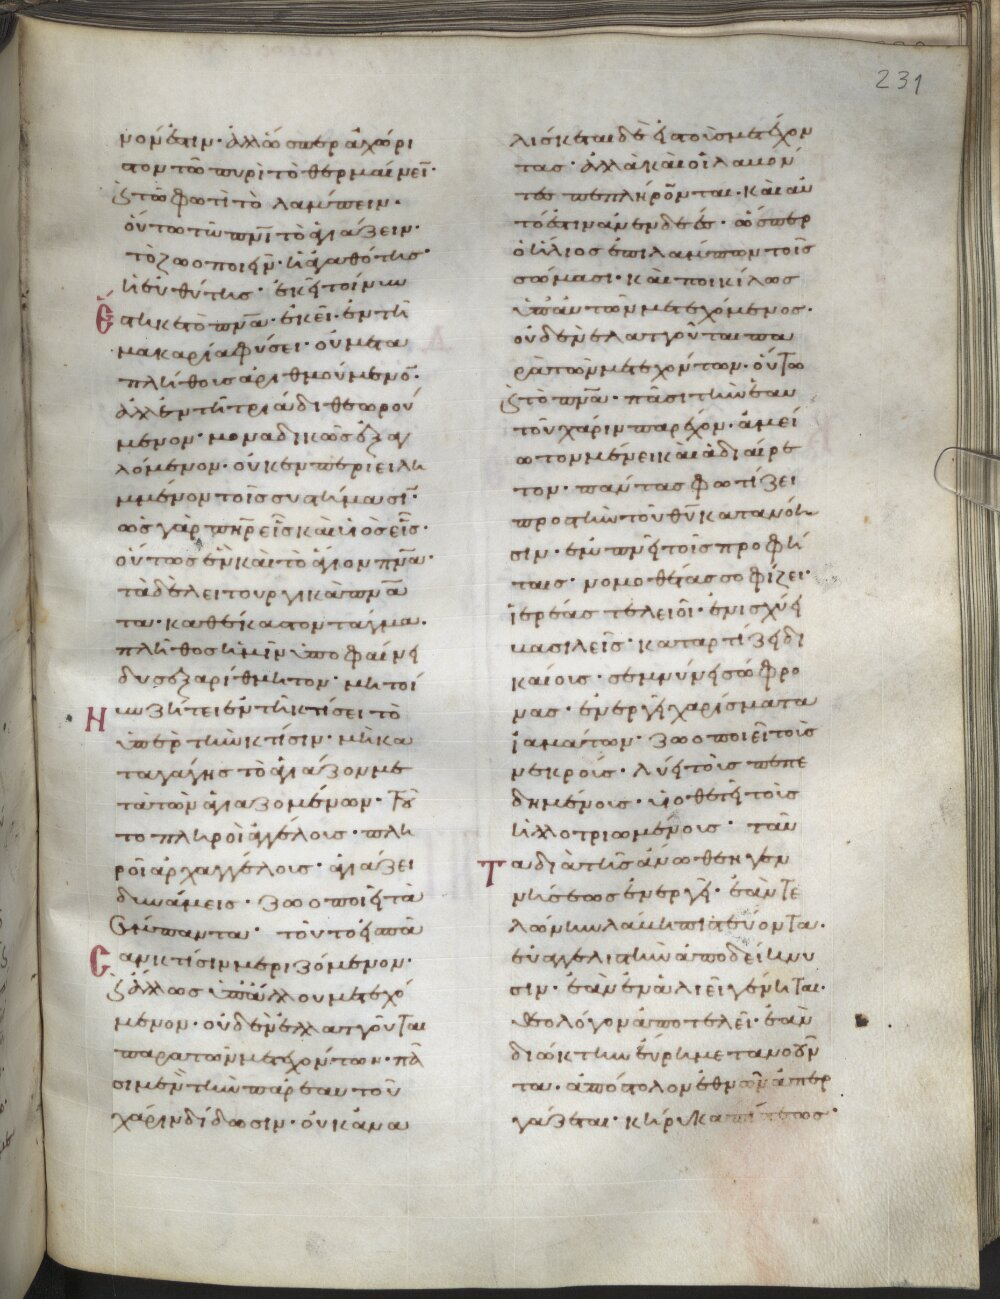 231
νον ἐστιν· ἀλλ' ὥσπερ ἀχώρι
στον τῶ πυρὶ τὸ θερμαίνειν·
ϗ τῶ φωτὶ τὸ λάμπειν·
οὕτω τῶ πνι τὸ ἁγιάζειν·
τὸ ζωοποιεῖν· ἡ ἀγαθότης·
ἡ εὐθύτης· ἐκεῖ τοίνυν
ἕστηκε τὸ πνα· ἐκεῖ· ἐν τῆ
μακαρία φύσει· οὐ μετα
πλήθους ἀριθμούμενον·
ἀλλ' ἐν τῆ τριάδι θεωρού
μενον· μοναδικῶς ἐξαγ
γελόμενον· οὐκ ἐμπεριειλη
μμένον τοῖς συστήμασιν·
ὡς γὰρ πηρ εἷς καὶ υἱὸς εἷς·
οὕτως ἓν καὶ τὸ ἅγιον πνα·
τὰ δὲ λειτουργικὰ πνα
τα· καθ' ἕκαστον τάγμα·
πλῆθος ἡμῖν ὑποφαίνει
δυσεξαρίθμητον· μὴ τοί
νυν ζήτει ἐν τῆ κτίσει τὸ
ὑπὲρ τὴν κτίσιν· μὴ κα
ταγάγης τὸ ἁγιάζον με
τὰ τῶν ἁγιαζομένων· τοῦ
το πληροῖ ἀγγέλους· πλη
ροῖ ἀρχαγγέλους· ἁγιάζει
δυνάμεις· ζωοποιεῖ τὰ
σύμπαντα· τοῦτο εἰς πᾶ
σαν κτίσιν μεριζόμενον·
ϗ ἄλλως ὑπ' ἄλλου μετεχό
μενον· οὐδὲν ἐλαττοῦται
παρα τῶν μετεχόντων· πᾶ
σι μὲν τὴν παρ' ἑαυτοῦ
χάριν δίδωσιν· οὐκ ἀνα
λίσκεται δὲ εἰς τοὺς μετέχον
τας· ἀλλὰ καὶ οἱ λαμόν
τες πεπλήρωνται· καὶ αὐ
τό ἐστιν ἀνενδεές· ὥσπερ
ὁ ἥλιος ἐπιλάμπων τοῖς
σώμασι· καὶ ποικίλως
ὑπ' αὐτῶν μετεχόμενος·
οὐδὲν ἐλαττοῦται πα
ρὰ τῶν μετεχόντων· οὕτω
ϗ τὸ πνα· πᾶσι τὴν ἑαυ
τοῦ χάριν παρέχον· ἀμεί
ωτον μένει καὶ ἀδιαίρε
τον· πάντας φωτίζει
προς τὴν τοῦ θυ κατανόη
σιν· ἐμπνεῖ τοῖς προφή
ταις· νομοθέτας σοφίζει·
ἱερέας τελειοῖ· ἐνισχύει
βασιλεῖς· καταρτίζει δι
καίους· σεμνύνει σώφρο
νας· ἐνεργεῖ χαρίσματα
ἰαμάτων· ζωοποιεῖ τοὺς
νεκρούς· λύει τοὺς πεπε
δημένους· υἱοθετεῖ τοὺς
ἠλλοτριωμένους· ταῦ
τα διὰ τῆς ἄνωθεν γεν
νήσεως ἐνεργεῖ· ἐὰν τε
λώνην λάβη πιστεύοντα·
εὐαγγελιστὴν ἀποδείκνυ
σιν· ἐὰν ἐν ἁλιεῖ γένηται·
θεολόγον ἀποτελεῖ· ἐὰν
διώκτην εὕρη μετανοοῦν
τα· ἀπόστολον ἐθνῶν ἀπερ
γάζεται· κήρυκα πίστεως·